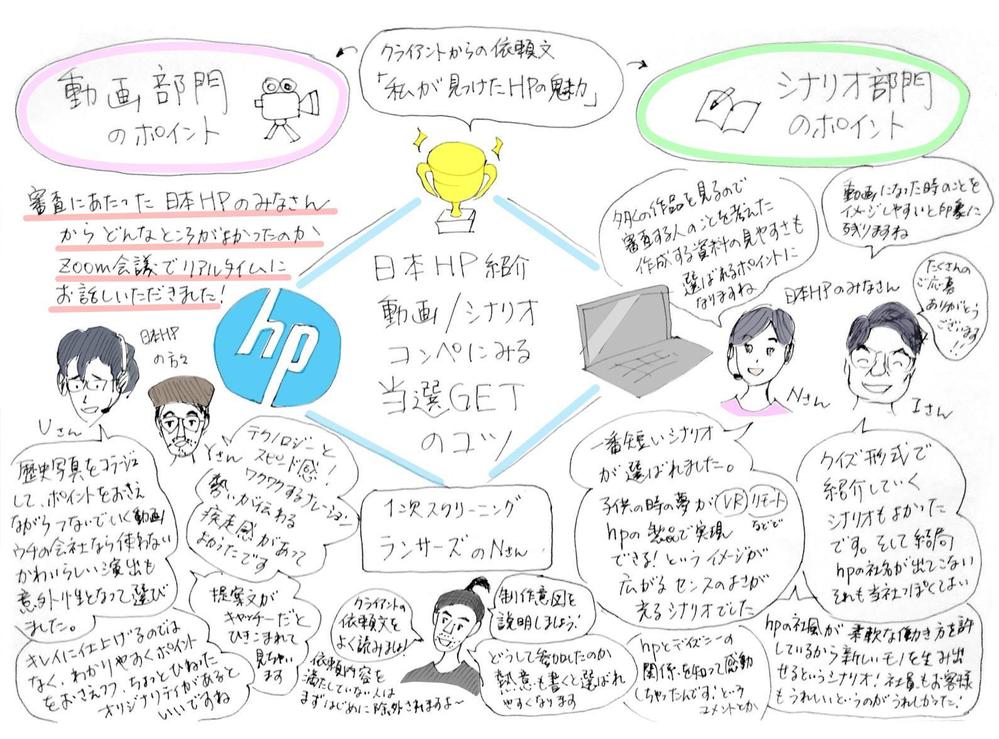 クライアントからの依頼文
「私が見つけたHPの魅力」
動画部門
のポイント
シナリオ部門
のポイント
審査にあたった日本HPのみなさん
からどんなところがよかったのか
Zoom会議でリアルタイムに
お話しいただきました!
hp
日本HP紹介
動画/シナリオ
コンペにみる
当選GET
のコツ
多くの作品を見るので
審査する人のことを考えた
作成する資料の見やすさも
選ばれるポイントに
なりますね
動画になった時のことを
イメージしやすいと印象に
残りますね
たくさんの
ご応募
ありがとう
ございます!!
日本HPのみなさん
Nさん
Iさん
日本HP
の方々
Uさん
Yさん
歴史写真をコラージュ
して、ポイントをおさえ
ながらつないでいく動画
ウチの会社なら使わない
かわいらしい演出も
意外性となって選び
ました。
テクノロジーと
スピード感!
ワクワクするナレーション
勢いが伝わる
疾走感があって
よかったです
提案文が
キャッチーだと
ひきこまれて
見ちゃい
ます
キレイに仕上げるのでは
なく、わかりやすくポイント
をおさえつつ、ちょっとひねった
オリジナリティがあると
いいですね
1次スクリーニング
ランサーズのNさん
クライアントの
依頼文を
よく読みましょ!
依頼内容を
満たしていない人は
まずはじめに除外されますよ〜
制作意図を
説明しましょう!
どうして参加したのか
熱意も書くと選ばれ
やすくなります
一番短いシナリオ
が選ばれました。
子供の時の夢がVRリモート
などど
hpの製品で実現
できる!というイメージが
広がるセンスのよさが
光るシナリオでした
クイズ形式で
紹介していく
シナリオもよかった
です。そして結局
hpの社名が出てこない
それも当社っぽくてよい
hpとディズニーの
関係を知って感動
しちゃったんです!という
コメントとか
hpの社風が柔軟な働き方を許
しているから新しいモノを生み出
せるというシナリオ!社員もお客様
もうれしいというのがうれしかった!